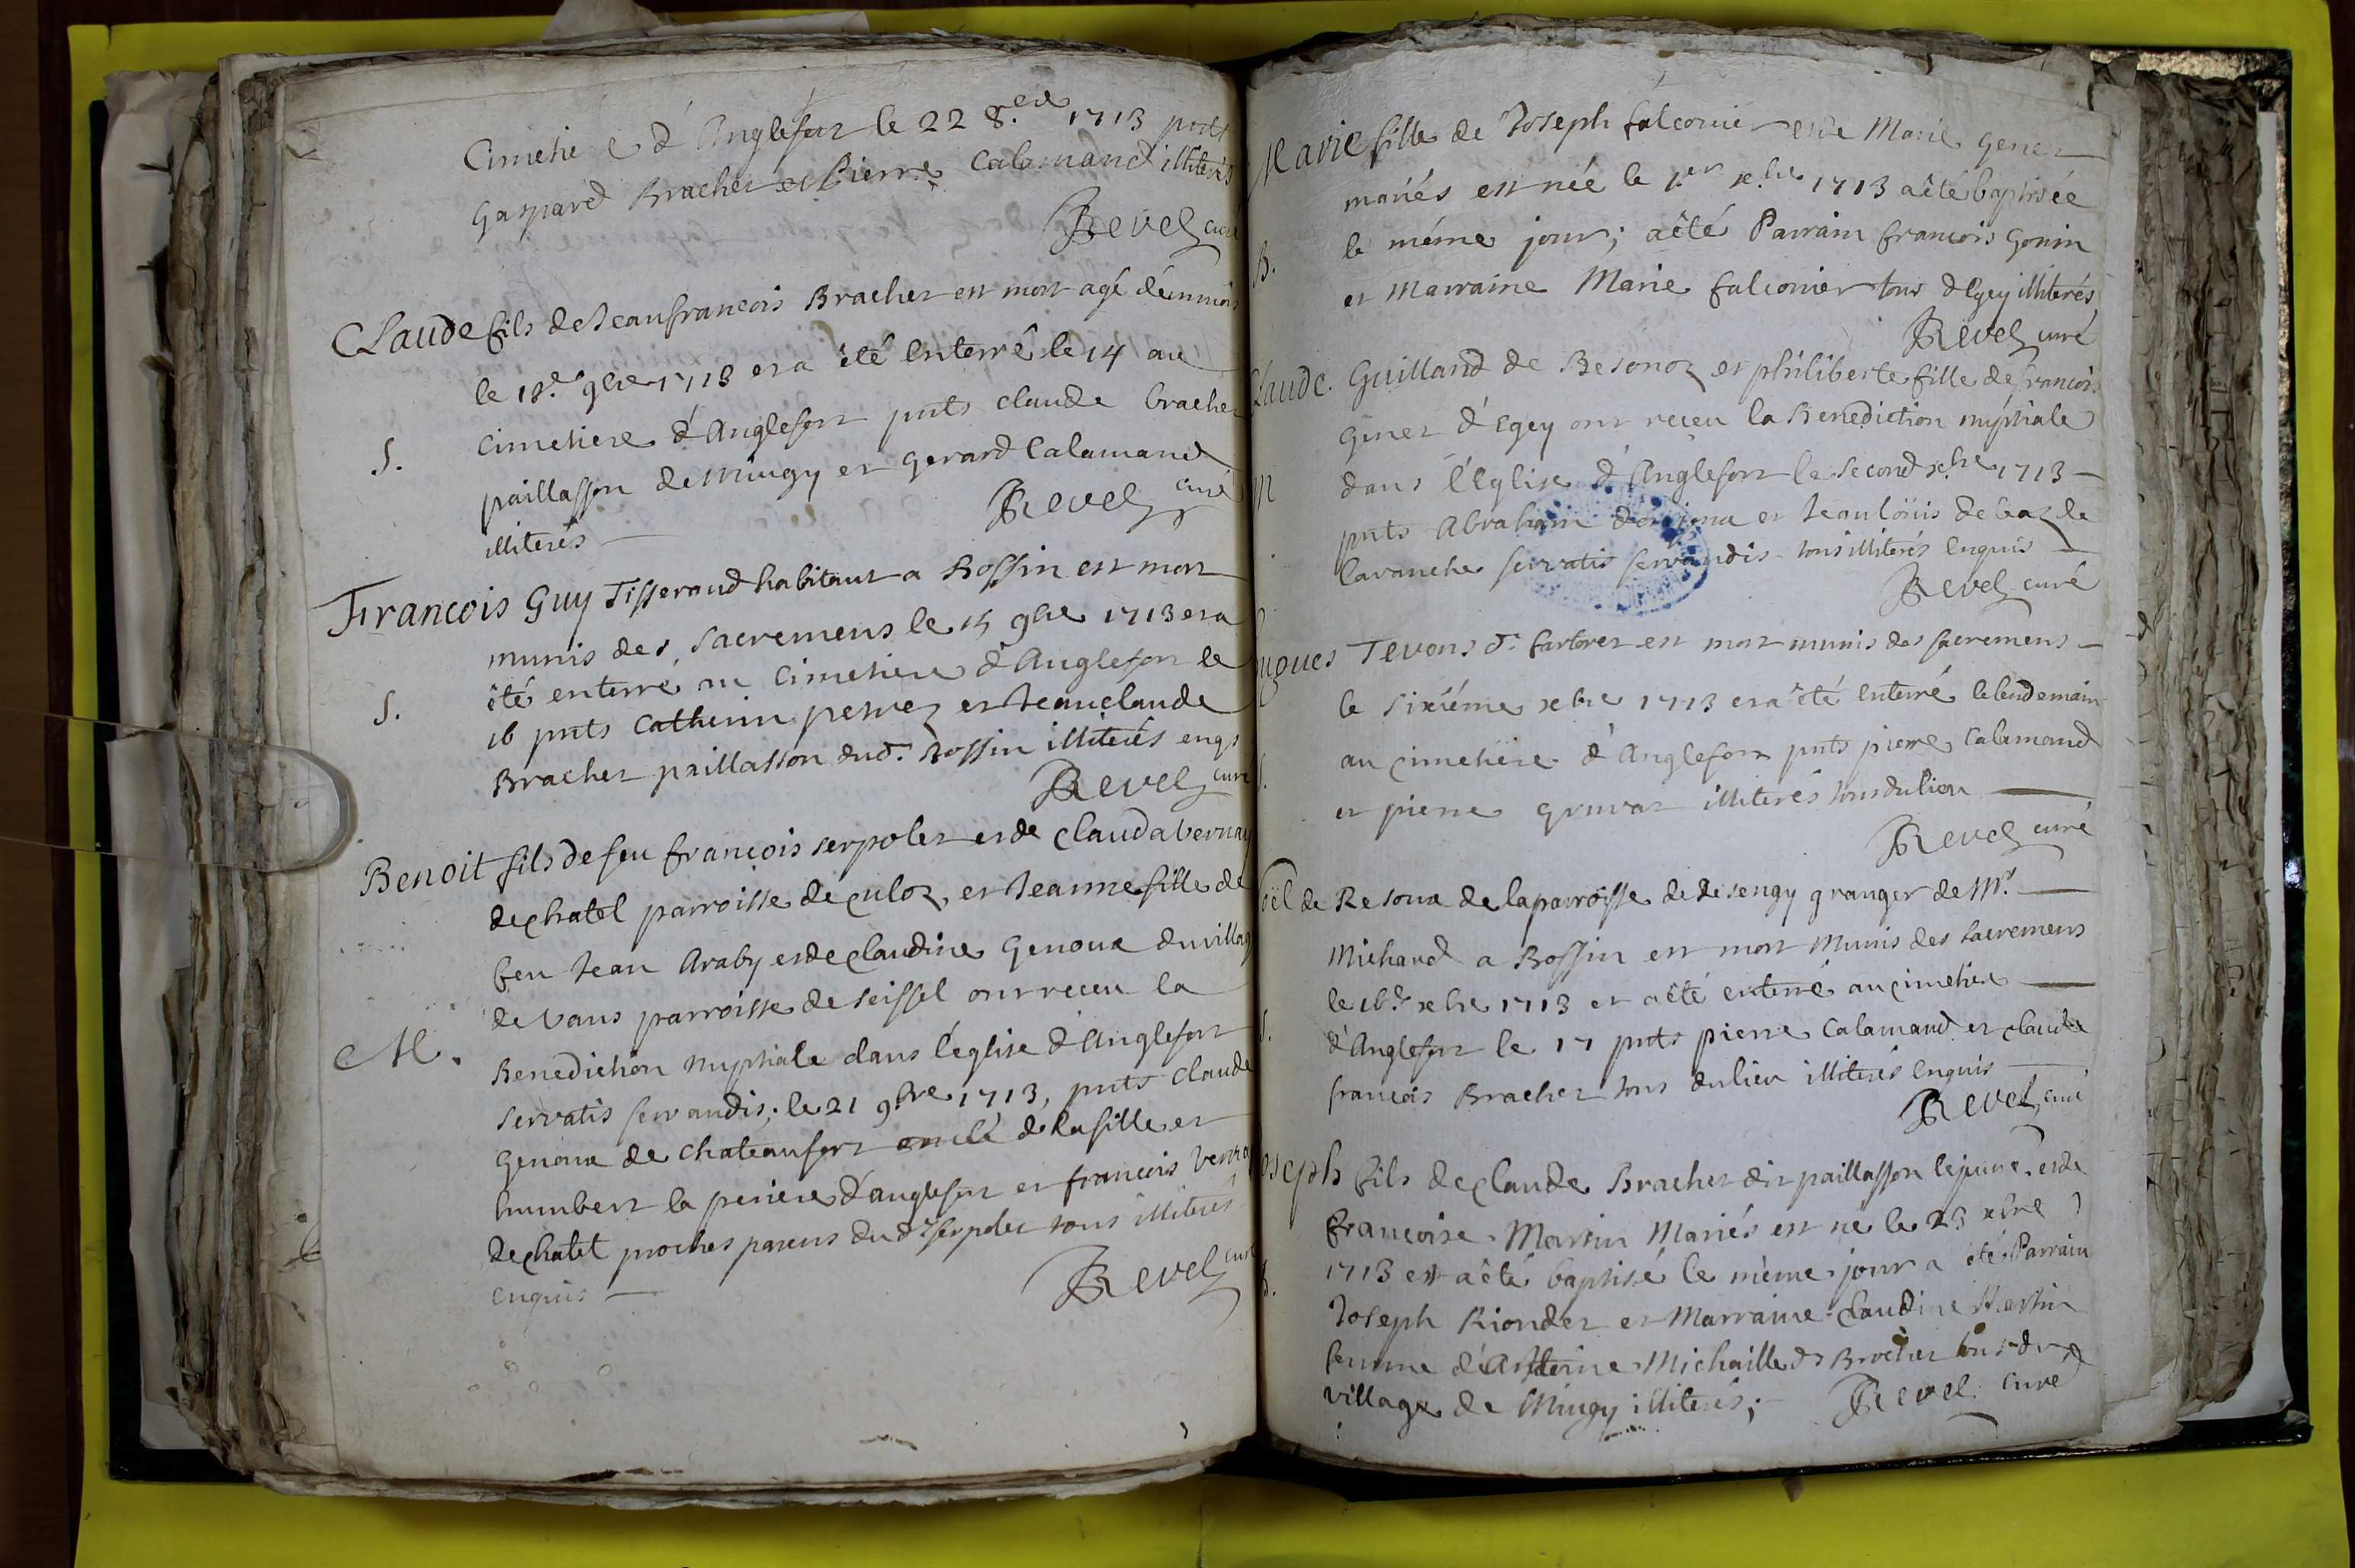 Cimetie e d'Anglefort le 22 8.bre 1713 pnts
Gaspard Brachet et Pierre Calamand illiterés
Revel curé
Claude fils de Jeanfrancois Brachet est mort agé d'un mois
le 13.e 9bre 1713 et a êté enterré le 14 au
S.
cimetiere d'Anglefort pnts claude brachet
paillasson de Mingy et gerard Calamand
illiterés — Revel curé
Francois Guy Tisserand habitant a Rossin est mort
munis des sacremens le 15 9bre 1713 et a
S.
êté enterré au Cimetiere d'Anglefort le
16 pnts Catherin pernez et Jeanclaude
Brachet paillasson dud.t Rossin illiterés enqs
Revel curé
Benoit fils de feu francois serpolet et de Clauda Vernay
de chatel parroisse de Culoz, et Jeanne fille de
feu Jean Araby et de Claudine Genoux du village
de Vans parroisse de seissel ont receu la
M.
Benediction nuptiale dans l'eglise d'Anglefort
servatis servandis; le 21 9.bre 1713, pnts Claude
Genoux de Chateaufort oncle de la fille et
humbert la periere d'anglefort et francois
de chatel proches parens du d.t serpolet tous illiterés
enquis — Revel curé
Marie fille de Joseph falconier et de Marie Genet
mariés est née le 1.er xbre 1713 a êté baptisée
B.
le même jour; a êté Parrain francois Gonin
et Marraine Marie falconier tous d'Egey illiterés
Revel curé
Claude Guilland de Besonoz et philiberte fille de francois
Genet d'Egey ont receu la Benediction nuptiale
M
dans l'Eglise d'Anglefort le second xbre 1713 —
pnts Abraham et Jeanloüis de la
lavanche servatis servandis tous illiterés Enquis —
Revel curé
Hugues Tevons d. fartoret est mort munis des sacremens —
le sixiéme xbre 1713 et a êté enterré le lendemain
S.
au cimetiere d'Anglefort pnts pierre Calamand
et pierre gruvat illiterés tous du lieu —
Revel curé
Noël de Resoux de la parroisse de Desengy granger de Mr. —
Michaud a Rossin est mort Munis des sacremens
le 16.e xbre 1713 et a êté enterré au cimetiere —
S.
d'Anglefort le 17 pnts pierre Calamand et claude
francois Brachet tous du lieu illiterés Enquis —
Revel curé
Joseph fils de Claude Brachet dit paillasson le jeune, et de
francoise Martin Mariés est né le 23 xbre
1713 et a êté baptisé le même jour a êté Parrain
B.
Joseph Riondet et Marraine Claudine Martin
femme d'Anterine Michaille dt Brochet tous du
village de Mingy illiterés; Revel curé